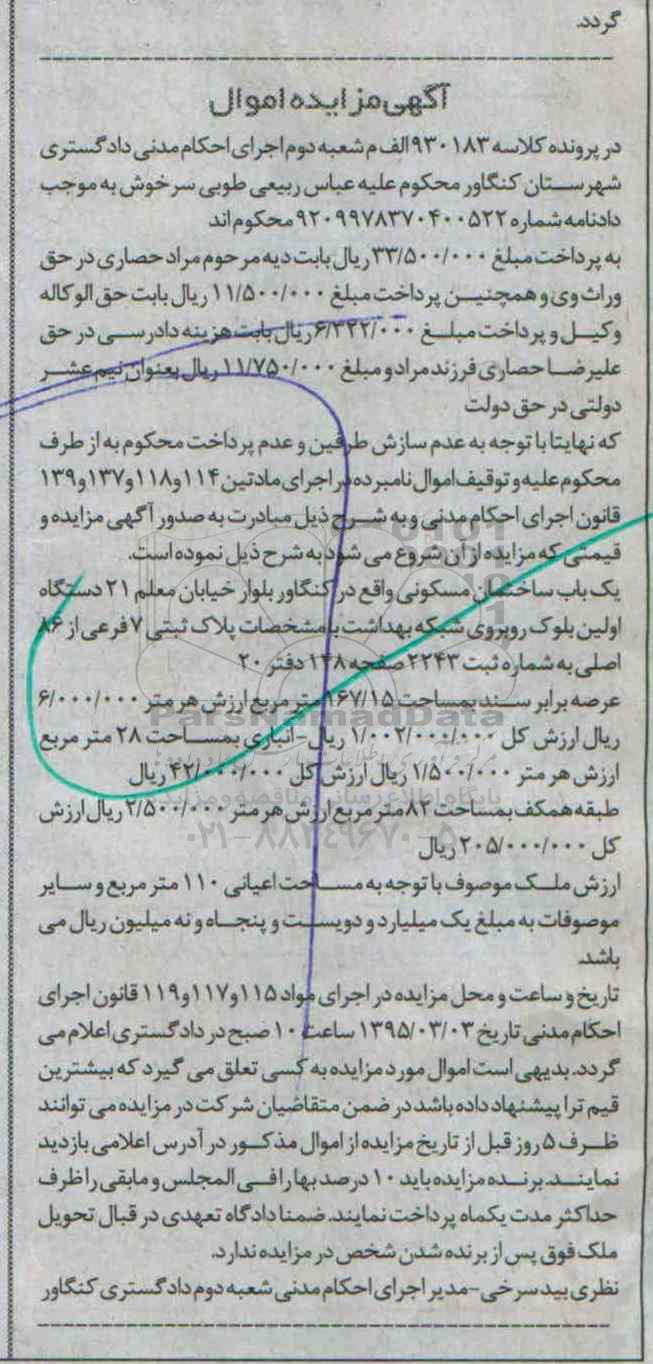 گردد.
آگهی مزایده اموال
در پرونده کلاسه ۹۳۰۱۸۳ الف م شعبه دوم اجرای احکام مدنی دادگستری
شهرستان کنگاور محکوم علیه عباس ربیعی طوبی سرخوش به موجب
دادنامه شماره ۹۲۰۹۹۷۸۳۷۰۴۰۰۵۲۲ محکوم اند
به پرداخت مبلغ ۳۳/۵۰۰/۰۰۰ ریال بابت دیه مرحوم مراد حصاری در حق
وراث وی و همچنین پرداخت مبلغ ۱۱/۵۰۰/۰۰۰ ریال بابت حق الوکاله
وکیل و پرداخت مبلغ ۶/۳۲۲/۰۰۰ ریال بابت هزینه دادرسی در حق
علیرضا حصاری فرزند مراد و مبلغ ۱۱/۷۵۰/۰۰۰ ریال بعنوان نیم عشر
دولتی در حق دولت
که نهایتا با توجه به عدم سازش طرفین و عدم پرداخت محکوم به از طرف
محکوم علیه و توقیف اموال نامبرده در اجرای مادتین ۱۱۴ و ۱۱۸ و ۱۳۷ و ۱۳۹
قانون اجرای احکام مدنی و به شرح ذیل مبادرت به صدور آگهی مزایده و
قیمتی که مزایده از آن شروع می شود به شرح ذیل نموده است.
یک باب ساختمان مسکونی واقع در کنگاور بلوار خیابان معلم ۲۱ دستگاه
اولین بلوک روبروی شبکه بهداشت با مشخصات پلاک ثبتی ۷ فرعی از ۸۶
اصلی به شماره ثبت ۲۲۴۳ صفحه ۱۴۸ دفتر ۲۰
عرصه برابر سند بمساحت ۱۶۷/۱۵ متر مربع ارزش هر متر ۶/۰۰۰/۰۰۰
ریال ارزش کل ۱/۰۰۲/۰۰۰/۰۰۰ ریال-انباری بمساحت ۲۸ متر مربع
ارزش هر متر ۱/۵۰۰/۰۰۰ ریال ارزش کل ۴۲/۰۰۰/۰۰۰ ریال
طبقه همکف بمساحت ۸۲ متر مربع ارزش هر متر ۲/۵۰۰/۰۰۰ ریال ارزش
کل ۲۰۵/۰۰۰/۰۰۰ ریال
ارزش ملک موصوف با توجه به مساحت اعیانی ۱۱۰ متر مربع و سایر
موصوفات به مبلغ یک میلیارد و دویست و پنجاه و نه میلیون ریال می
باشد.
تاریخ و ساعت و محل مزایده در اجرای مواد ۱۱۵ و ۱۱۷ و ۱۱۹ قانون اجرای
احکام مدنی تاریخ ۱۳۹۵/۰۳/۰۳ ساعت ۱۰ صبح در دادگستری اعلام می
گردد. بدیهی است اموال مورد مزایده به کسی تعلق می گیرد که بیشترین
قیم ترا پیشنهاد داده باشد در ضمن متقاضیان شرکت در مزایده می توانند
ظرف ۵ روز قبل از تاریخ مزایده از اموال مذکور در آدرس اعلامی بازدید
نمایند. برنده مزایده باید ۱۰ درصد بها را فی المجلس و مابقی را ظرف
حداکثر مدت یکماه پرداخت نمایند. ضمنا دادگاه تعهدی در قبال تحویل
ملک فوق پس از برنده شدن شخص در مزایده ندارد.
نظری بید سرخی-مدیر اجرای احکام مدنی شعبه دوم دادگستری کنگاور
ParsNamadData
پایگاه اطلاع رسانی مناقصه و مزایده
۰۲۱-۸۸۳۴۹۶۷۰-۵